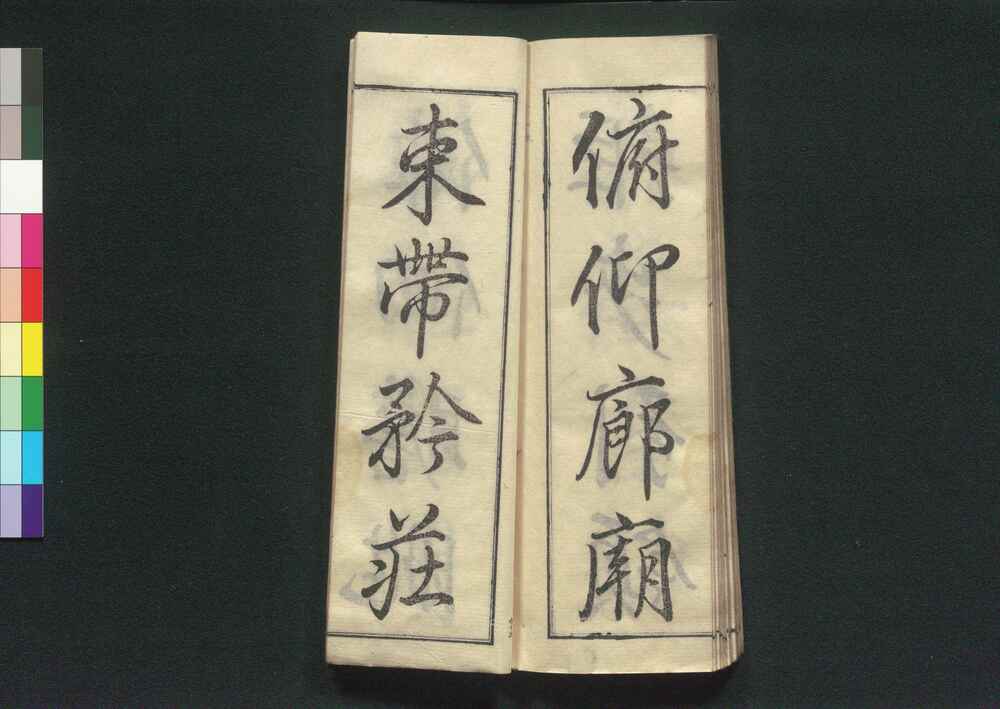 俯仰廊廟
束帶矜莊